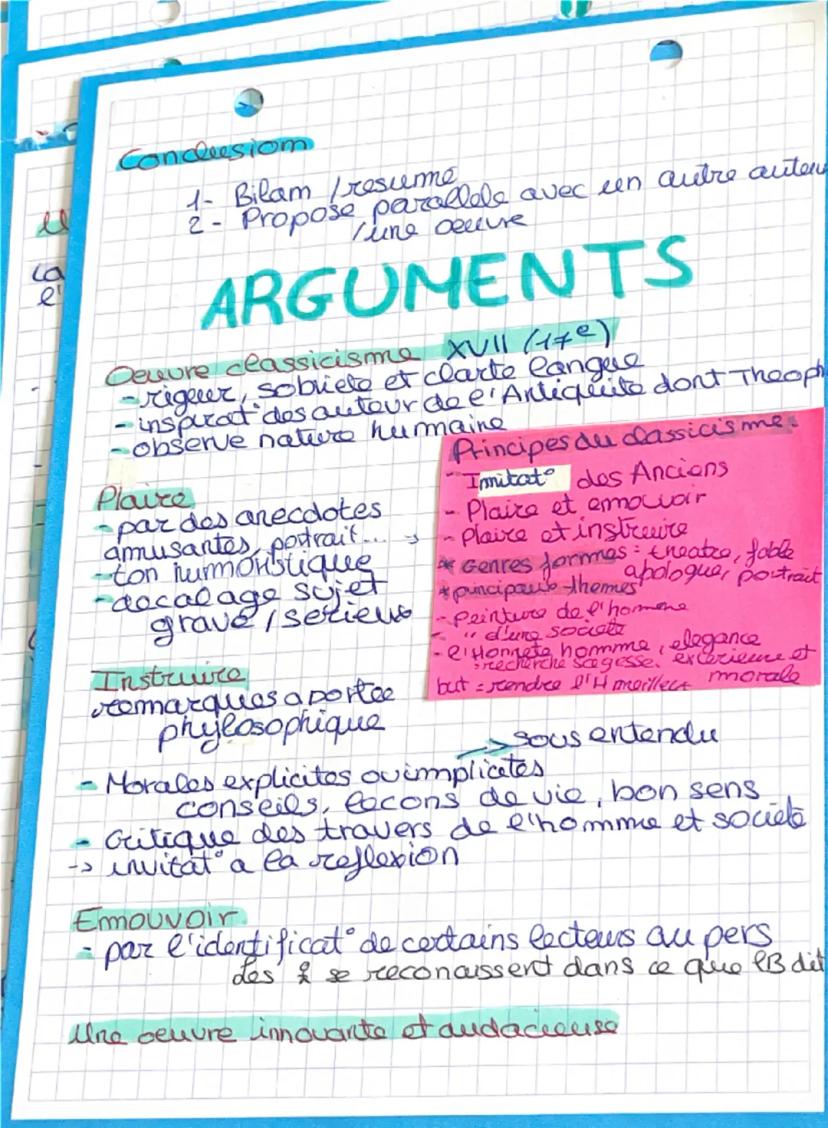 Conclusion
1- Bilan / resumé
2- Propose parallele avec un autre auteu
/ une oeuvre
ARGUMENTS
Oeuvre classicisme XVII (17e)
- rigeur, sobriete et clarte langue
- inspirat° des auteur de l'Antiquité dont Theoph
- observe nature humaine
Plaire
- par des anecdotes
amusantes, portrait...
- ton humoristique
- decalage sujet
grave / serieux
Principes du classicisme :
- Imitat° des Anciens
- Plaire et emouvoir
- Plaire et instruire
* Genres formes : theatre, fable
apologue, portrait
* principaux themes
- Peinture de l'homme
- " d'une société
- l'Honnete homme, elegance
: recherche sagesse, exterieure et
but : rendre l'H meilleur morale
Instruire
remarques a portée
phylosophique
→ sous entendu
- Morales explicites ou implicites
conseils, lecons de vie, bon sens
- Critique des travers de l'homme et societé
-> invitat° a la reflexion
Emouvoir
- par l'identificat° de certains lecteurs au pers
des se reconaissent dans ce que LB dit
Une oeuvre innovante et audacieuse
ca
l'